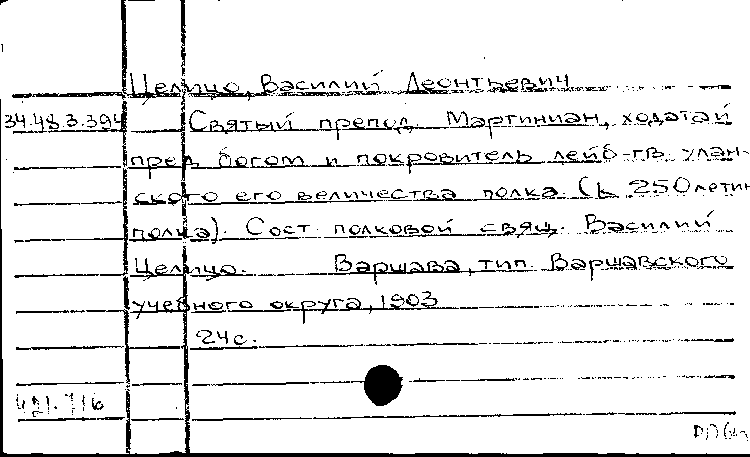 Целицо, Василий Леонтьевич
34.48.3.394 Святый препод. Мартиниан, ходатай
пред богом и покровитель лейб-гв. улан-
ского его величества полка. (К 250летию
полка). Сост. полковой свящ. Василий
Целицо. Варшава, тип. Варшавского
учебного округа, 1903
24с.